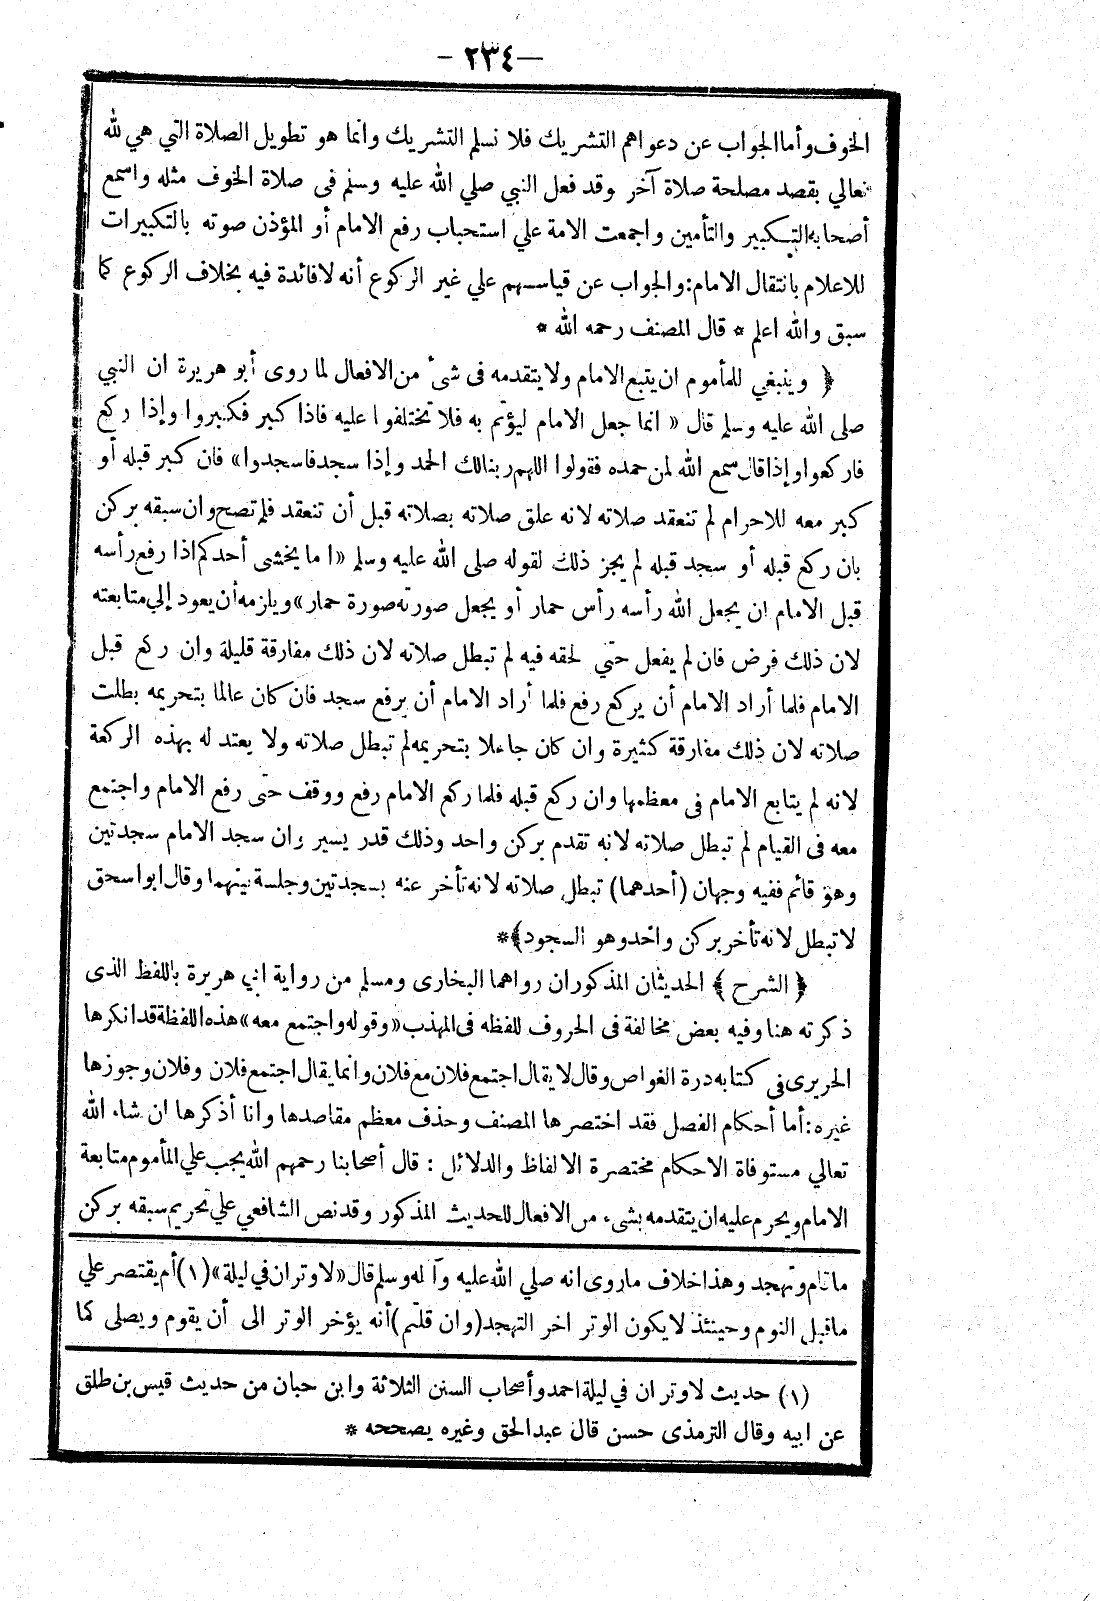 -٢٣٤-
الخوف وأما الجواب عن دعواهم التشريك فلا نسلم التشريك وانما هو تطويل الصلاة التي هي لله
تعالي بقصد مصلحة صلاة آخر وقد فعل النبي صلي الله عليه وسلم فى صلاة الخوف مثله واسمع
أصحابه التكبير والتأمين واجمعت الامة علي استحباب رفع الامام أو المؤذن صوته بالتكبيرات
للاعلام بانتقال الامام: والجواب عن قياسهم علي غير الركوع أنه لا فائدة فيه بخلاف الركوع كما
سبق والله اعلم * قال المصنف رحمه الله *
﴿ وينبغي للمأموم ان يتبع الامام ولا يتقدمه فى شئ من الافعال لما روى أبو هريرة ان النبي
صلى الله عليه وسلم قال « انما جعل الامام ليؤتم به فلا تختلفوا عليه فاذا كبر فكبروا وإذا ركع
فاركعوا وإذا قال سمع الله لمن حمده فقولوا اللهم ربنا لك الحمد وإذا سجد فاسجدوا» فان كبر قبله أو
كبر معه للاحرام لم تنعقد صلاته لانه علق صلاته بصلاته قبل أن تنعقد فلم تصح وان سبقه بركن
بان ركع قبله أو سجد قبله لم يجز ذلك لقوله صلى الله عليه وسلم «اما يخشى أحدكم اذا رفع رأسه
قبل الامام ان يجعل الله رأسه رأس حمار أو يجعل صورته صورة حمار» ويلزمه أن يعود إلي متابعته
لان ذلك فرض فان لم يفعل حتي لحقه فيه لم تبطل صلاته لان ذلك مفارقة قليلة وان ركع قبل
الامام فلما أراد الامام أن يركع رفع فلما أراد الامام أن يرفع سجد فان كان عالما بتحريمه بطلت
صلاته لان ذلك مفارقة كثيرة وان كان جاهلا بتحريمه لم تبطل صلاته ولا يعتد له بهذه الركعة
لانه لم يتابع الامام فى معظمها وان ركع قبله فلما ركع الامام رفع ووقف حتى رفع الامام واجتمع
معه فى القيام لم تبطل صلاته لانه تقدم بركن واحد وذلك قدر يسير وان سجد الامام سجدتين
وهو قائم ففيه وجهان (أحدهما) تبطل صلاته لانه تأخر عنه بسجدتين وجلسة بينهما وقال ابو اسحق
لا تبطل لانه تأخر بركن واحد وهو السجود﴾*
﴿ الشرح ﴾ الحديثان المذكوران رواهما البخارى ومسلم من رواية ابي هريرة باللفظ الذى
ذكرته هنا وفيه بعض مخالفة فى الحروف للفظه فى المهذب «وقوله واجتمع معه» هذه اللفظة قد انكرها
الحريرى في كتابه درة الغواص وقال لا يقال اجتمع فلان مع فلان وانما يقال اجتمع فلان وفلان وجوزها
غيره: أما أحكام الفصل فقد اختصرها المصنف وحذف معظم مقاصدها وانا أذكرها ان شاء الله
تعالي مستوفاة الاحكام مختصرة الالفاظ والدلائل : قال أصحابنا رحمهم الله يجب علي المأموم متابعة
الامام ويحرم عليه ان يتقدمه بشىء من الافعال للحديث المذكور وقد نص الشافعي علي تحريم سبقه بركن
ما قام وتهجد وهذا خلاف ما روى انه صلي الله عليه وآله وسلم قال «لا وتران في ليلة» (١) أم يقتصر علي
ما قبل النوم وحينئذ لا يكون الوتر اخر التهجد (وان قلتم) أنه يؤخر الوتر الى أن يقوم ويصلى كما
(١) حديث لا وتران في ليلة احمد وأصحاب السنن الثلاثة وابن حبان من حديث قيس بن طلق
عن ابيه وقال الترمذى حسن قال عبد الحق وغيره يصححه *